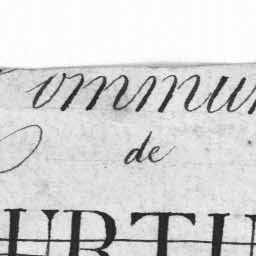 Commun
de
URTI